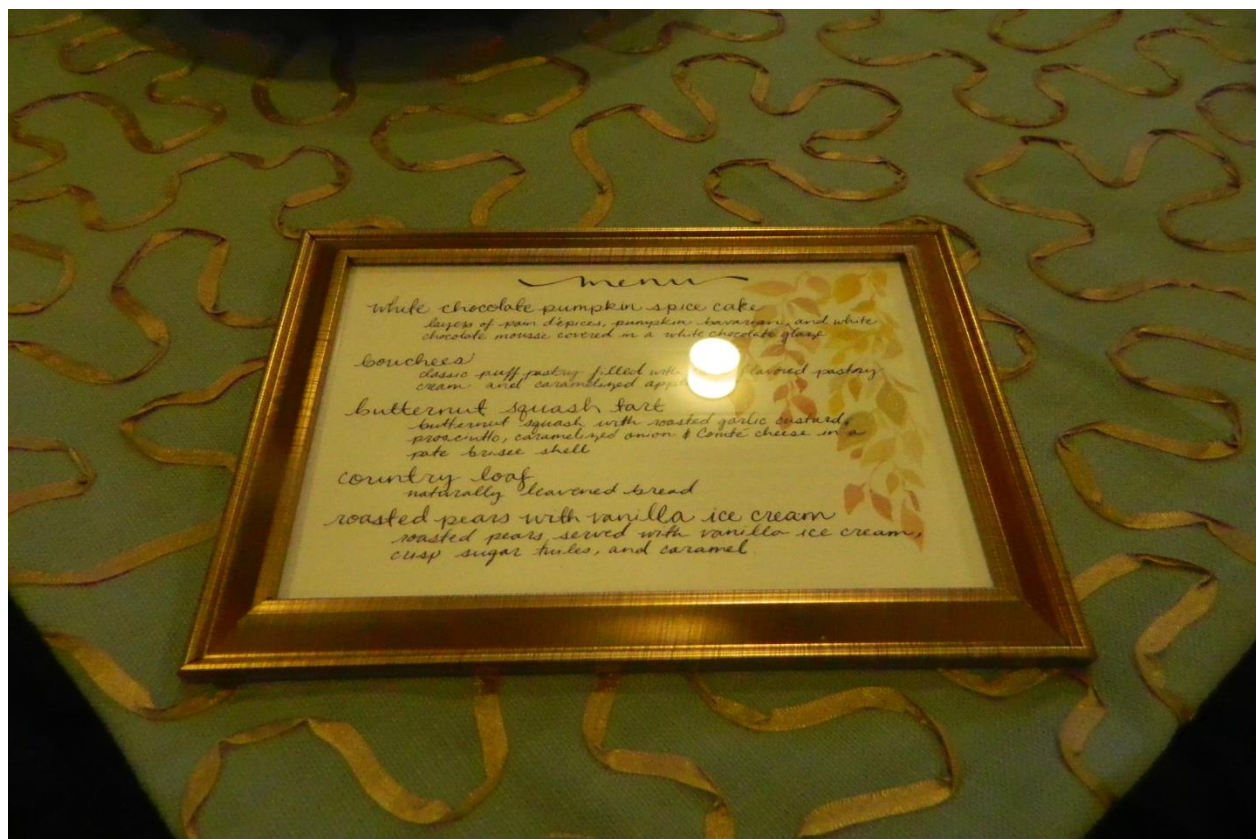 menu
white chocolate pumpkin spice cake
layers of pain d'epices, pumpkin bavarian, and white
chocolate mousse covered in a white chocolate glaze
bouchees
classic puff pastry filled with flavored pastry
cream and caramelized
butternut squash tart
butternut squash with roasted garlic custard,
prosciutto, caramelized onion & Comté cheese in a
pate brisee shell
country loaf
naturally leavened bread
roasted pears with vanilla ice cream
roasted pears, served with vanilla ice cream,
crisp sugar tuiles, and caramel